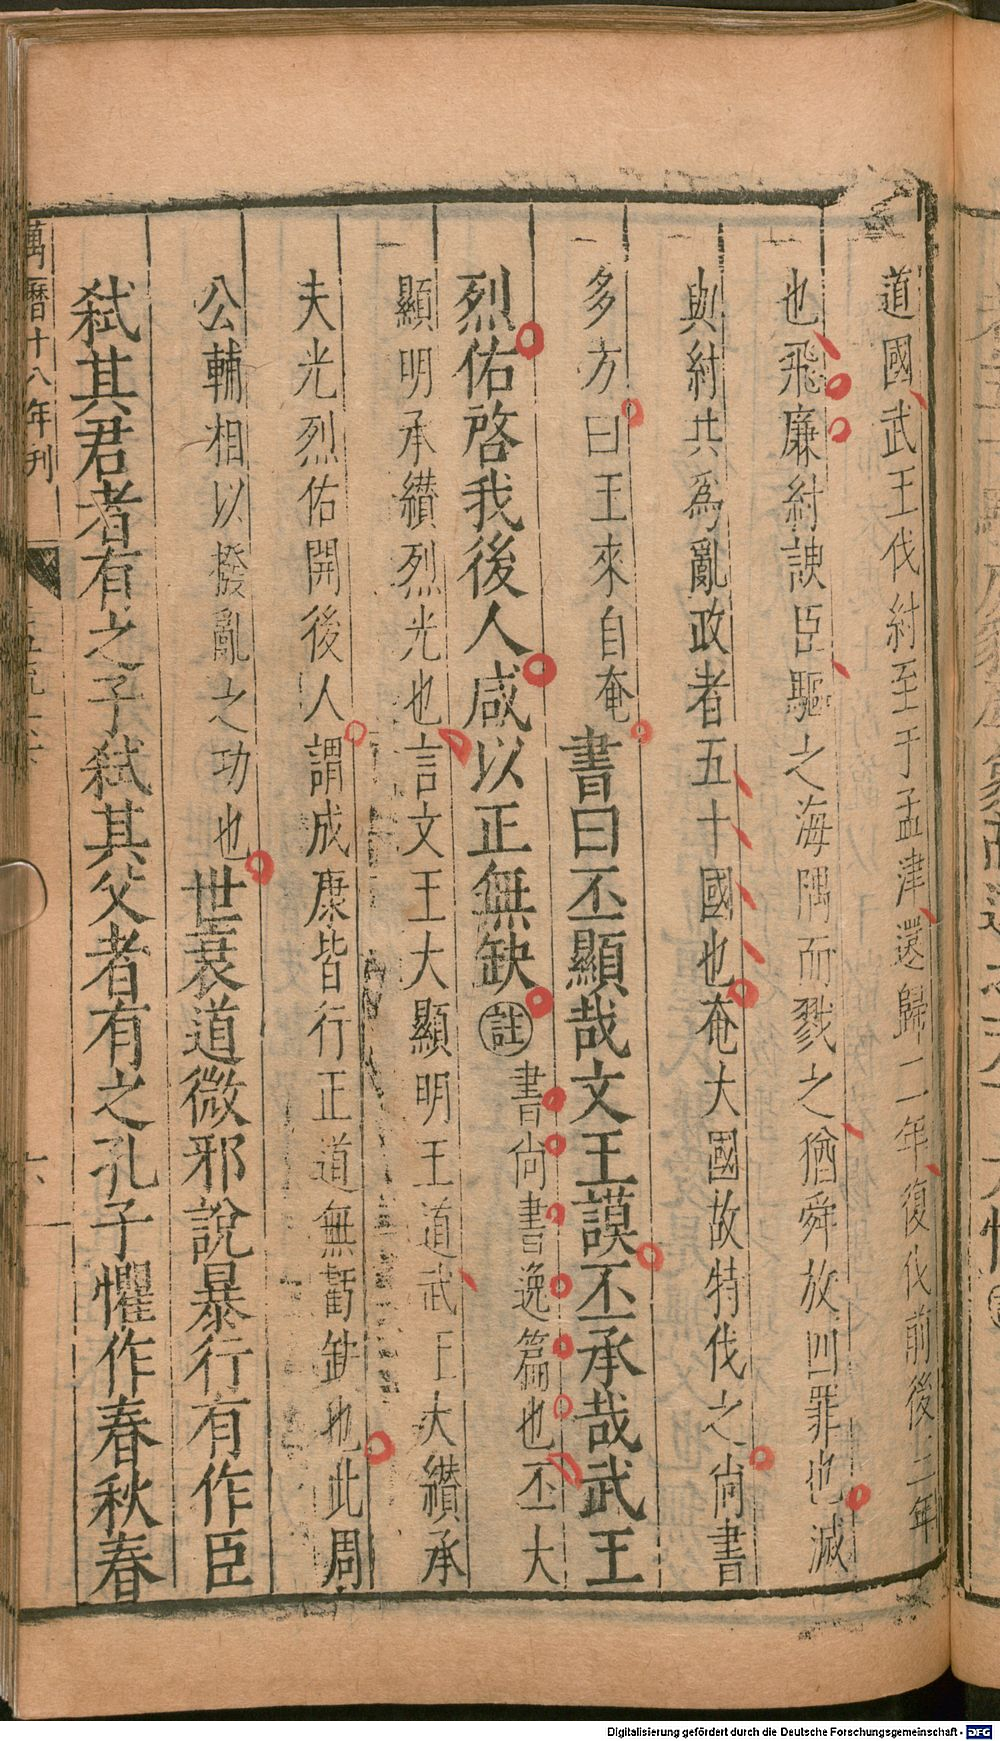 道國武王伐紂至于孟津還歸二年復伐前後三年
也飛廉紂諛臣驅之海隅而戮之猶舜放四罪也滅
與紂共爲亂政者五十國也奄大國故特伐之尚書
多方曰王來自奄書曰丕顯哉文王謨丕承哉武王
烈佑啓我後人咸以正無缺註書尚書逸篇也丕大
顯明承纘烈光也言文王大顯明王道武王大纘承
夫光烈佑開後人謂成康皆行正道無虧缺也此周
公輔相以撥亂之功也世衰道微邪說暴行有作臣
弑其君者有之子弑其父者有之孔子懼作春秋春
萬曆十八年刊
六
Digitalisierung gefördert durch die Deutsche Forschungsgemeinschaft - DFG